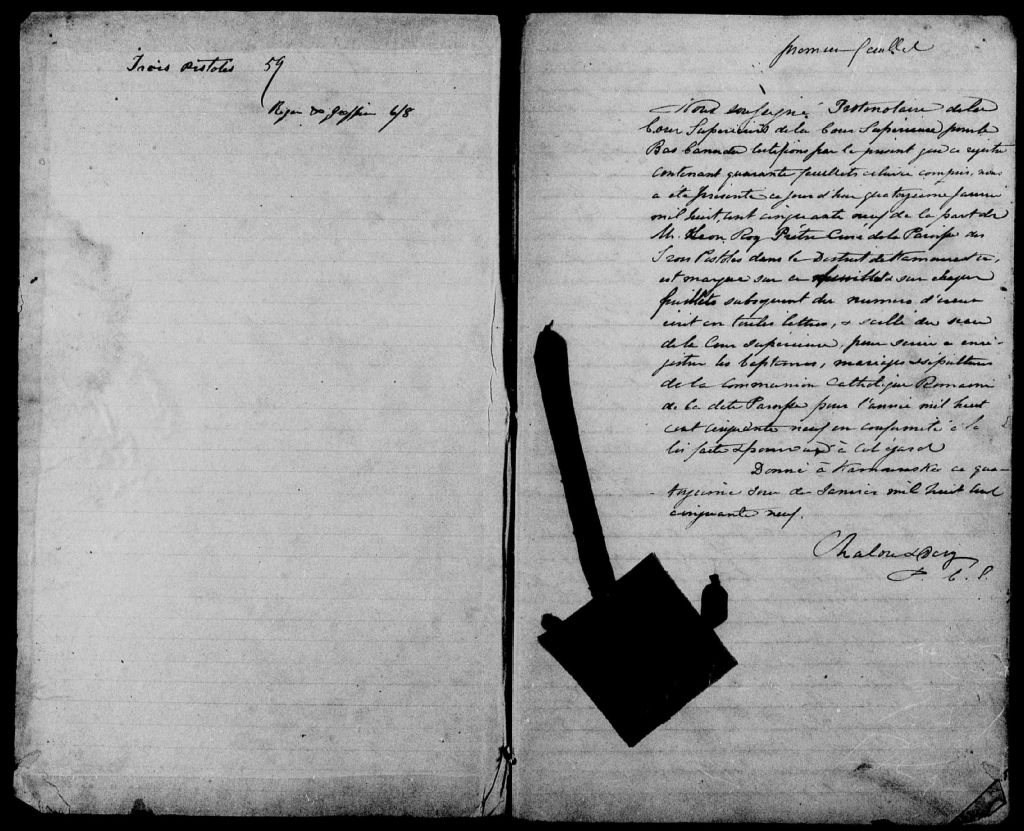 Trois Pistoles 59
Régist & Greffier 6/8
premier feuillet
Nous soussigné Protonotaire de la
Cour Superieure de la Cour Supérieure pour le
Bas Canada certifions par le présent que ce régistre
contenant quarante feuillets celui ci compris, nous
a été présenté ce jour d'hui quatorzieme janvier
mil huit cent cinquante neuf de la part de
M. Leon Roy Prêtre Curé de la Paroisse des
Trois Pistoles dans le District de Kamouraska,
est marqué sur ce feuillet & sur chaque
feuillets subsequent du numero d'iceux
écrit en toutes lettres, & scellé du sceau
de la Cour Supérieure, pour servir a enré-
gistrer les baptemes, mariages & sépultures
de la Communion Catholique Romaine
de la dite Paroisse pour l'année mil huit
cent cinquante neuf en conformité à la
loi faite & pourvue à cet égard
Donné à Kamouraska ce qua-
torzieme jour de Janvier mil huit cent
cinquante neuf.
P. C. S.